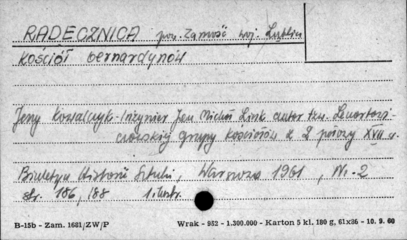 RADECZNICA pow. Zamość woj. Lublin
Kościół bernardynów
Jerzy Kowalczyk - Inżynier Jan Michał Link autor tzw.
grupy kościołów z 2 połowy XVII w.
Biuletyn Historii Sztuki, Warszawa 1961, Nr. 2
str. 186, 188 1 ilustr.
B-15b - Zam. 1681/ZW/P Wrak - 952 - 1.300.000 - Karton 5 kl. 180 g, 61x86 - 10. 9. 60